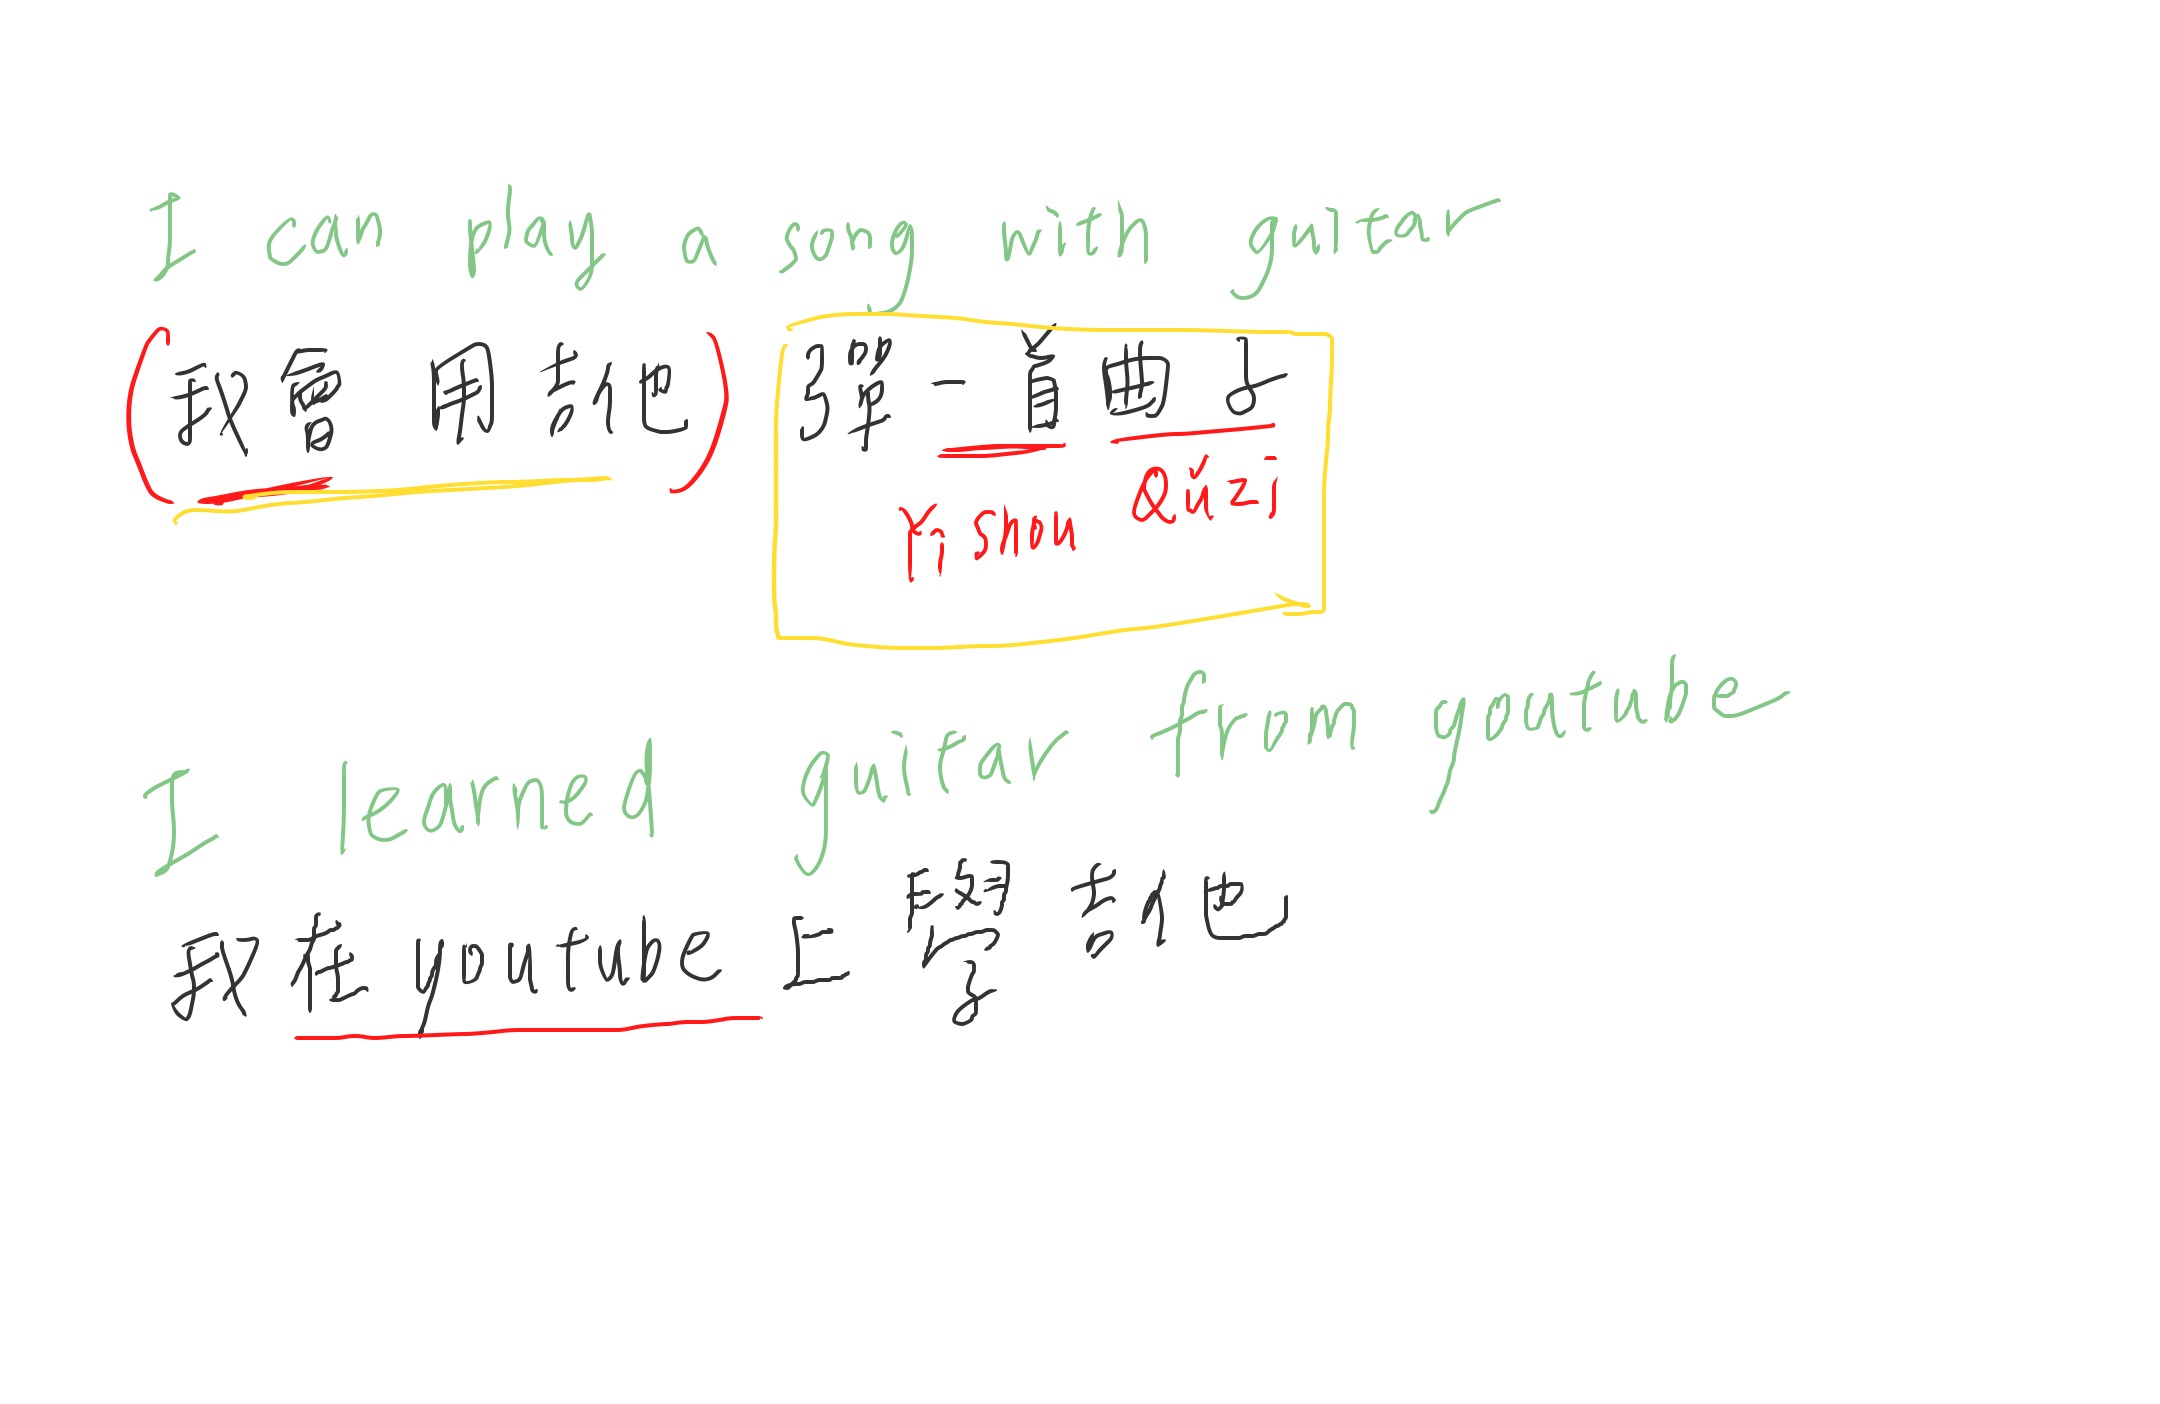 I can play a song with guitar
(我會 用吉他) 彈一首曲子
Yī shou Qǔzi
I learned guitar from youtube
我在youtube上學吉他